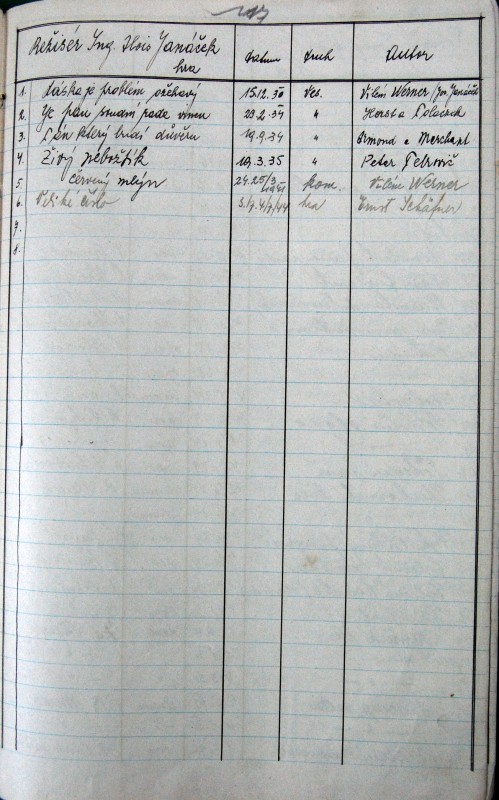 Režisér Ing. Alois Janáček
hra Datum Druh Autor
1. Láska je problém ožehavý 15.12.30 ves. Vilém Werner (Jos. Janáček)
2. Je pan soudní rada vinen 23.2.34 " Horst a Poláček
3. Pán který budí důvěru 19.9.34 " Armond a Merchant
4. Živý nebožtík 10.3.35 " Peter Petrovič
5. Červený mlýn 24.25/3 1941 kom. Vilém Werner
6. Veliké číslo 3./7. 4/7/44 hra Ernst Schäfner
7.
8.